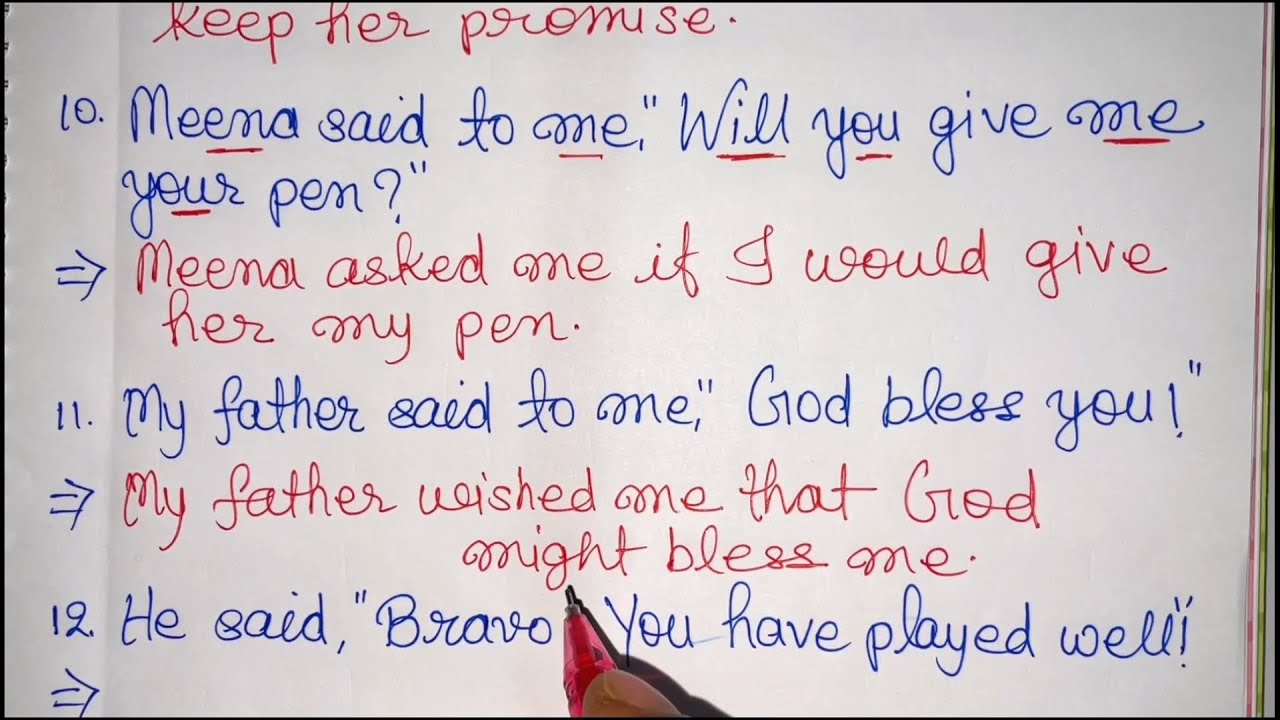 keep her promise.
10. Meena said to me," Will you give me
your pen?"
⇒ Meena asked me if I would give
her my pen.
11. My father said to me," God bless you!"
⇒ My father wished me that God
might bless me.
12. He said, "Bravo You have played well!"
⇒